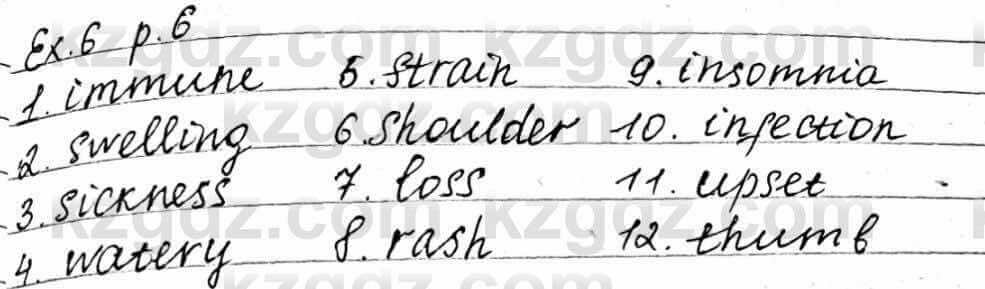 Ex.6 p.6
1. immune 5. strain 9. insomnia
2. swelling 6. shoulder 10. infection
3. sickness 7. loss 11. upset
4. watery 8. rash 12. thumb
kzgdz.com kzgdz.com kzgdz.com